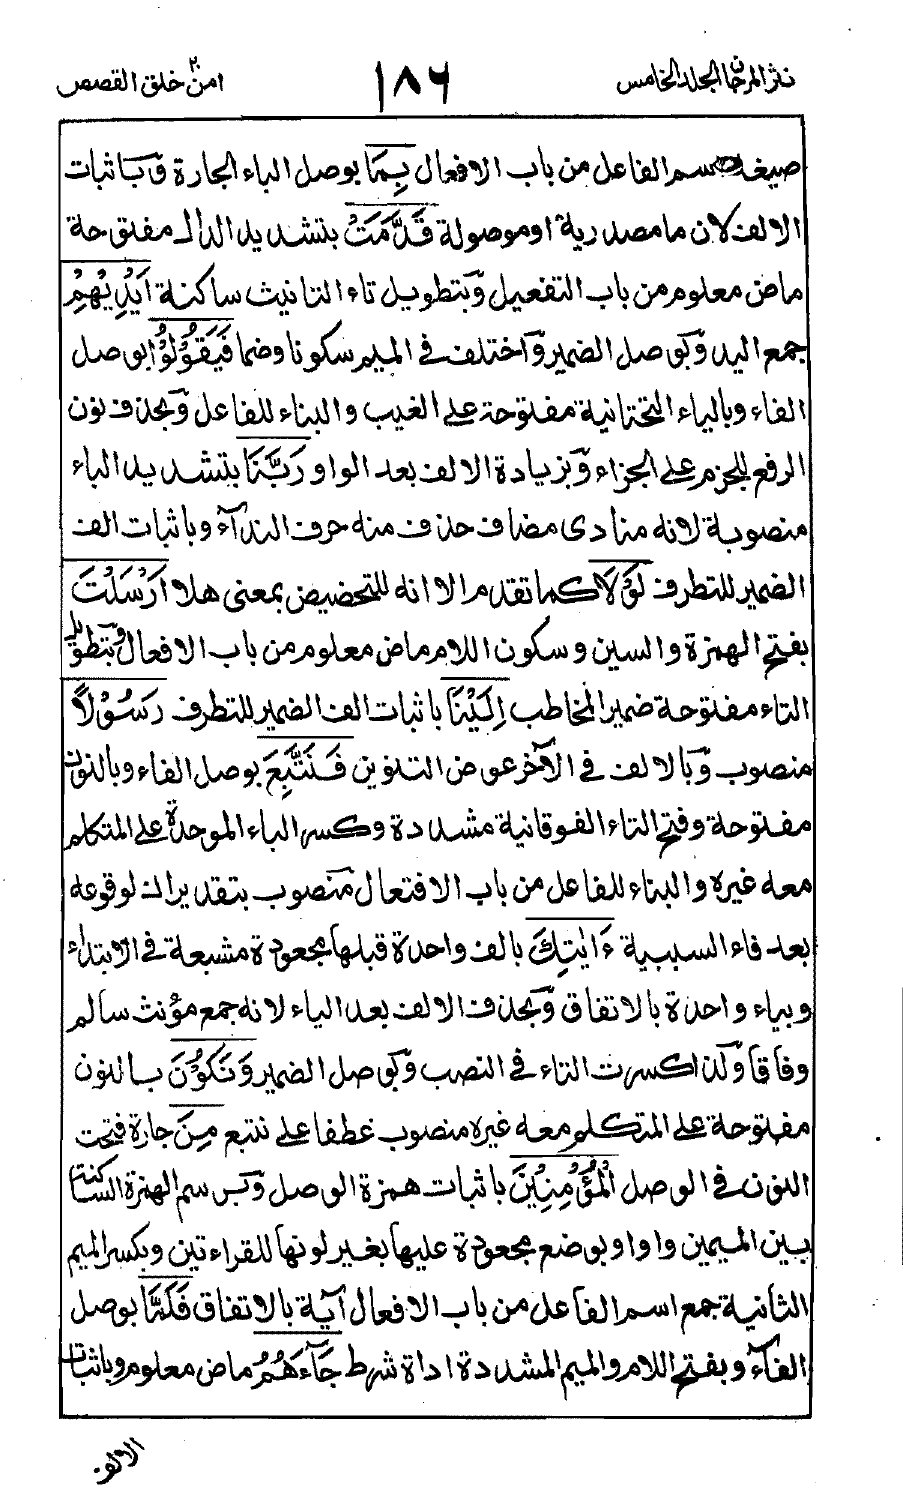 نثر المرجان المجلد الخامس
١٨٦
امن خلق القصص
صيغة اسم الفاعل من باب الافعال بِمَا بوصل الباء الجارة وَباثبات
الالف لان ما مصدرية او موصولة قَدَّمَتْ بتشديد الدال مفتوحة
ماض معلوم من باب التفعيل وَبتطويل تاء التانيث ساكنة اَيْدِيْهِمْ
جمع اليد وَبوصل الضمير وَاختلف في الميم سكونا وضما فَيَقُوْلُوْا بوصل
الفاء وبالياء التحتانية مفتوحة على الغيب والبناء للفاعل وَبحذف نون
الرفع للجزم على الجزاء وَبزيادة الالف بعد الواو رَبَّنَا بتشديد الباء
منصوبة لانه منادى مضاف حذف منه حرف النداء وباثبات الف
الضمير للتطرف لَوْلَا كما تقدم الا انه للتحضيض بمعنى هلا اَرْسَلْتَ
بفتح الهمزة والسين وسكون اللام ماض معلوم من باب الافعال وبتطويل
التاء مفتوحة ضمير المخاطب اِلَيْنَا باثبات الف الضمير للتطرف رَسُوْلًا
منصوب وَبالالف في الآخر عوض التنوين فَنَتَّبِعَ بوصل الفاء وبالنون
مفتوحة وفتح التاء الفوقانية مشددة وكسر الباء الموحدة على المتكلم
معه غيره والبناء للفاعل من باب الافتعال منصوب بتقدير ان لوقوعه
بعد فاء السببية ءَايٰتِكَ بالف واحدة قبلها مجعودة مشبعة في الابتداء
وبياء واحدة بالاتفاق وَبحذف الالف بعد الياء لانه جمع مؤنث سالم
وفاقا وَلذا كسرت التاء في النصب وَبوصل الضمير وَنَكُوْنَ بالنون
مفتوحة على المتكلم معه غيره منصوب عطفا على نتبع مِنَ جارة فتحت
النون في الوصل الْمُؤْمِنِيْنَ باثبات همزة الوصل وَبرسم الهمزة الساكنة
بين الميمين واوا وبوضع مجعودة عليها بغير لونها للقراءتين وبكسر الميم
الثانية جمع اسم الفاعل من باب الافعال آية بالاتفاق فَلَمَّا بوصل
الفاء وبفتح اللام والميم المشددة اداة شرط جَآءَهُمُ ماض معلوم وباثبات
الالف